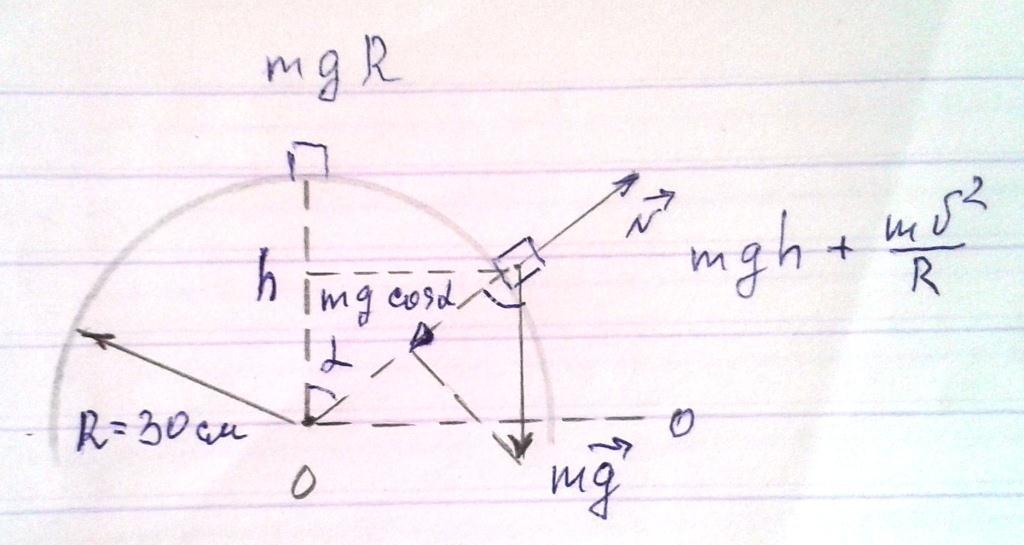 mgR
h
mg cosα
α
N⃗
mgh + mυ²/R
R=30см
O
O
mg⃗